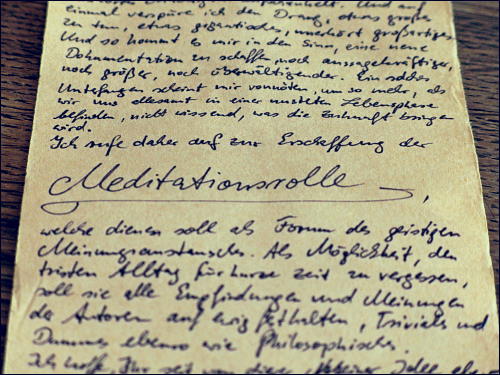 einmal verspüre ich den Drang, etwas großes
zu tun, etwas gigantisches, unerhört großartiges.
Und so kommt es mir in den Sinn, eine neue
Dokumentation zu schaffen, noch aussagekräftiger,
noch größer, noch überwältigender. Ein solches
Unterfangen scheint mir vonnöten, um so mehr, als
wir uns allesamt in einer unsteten Lebensphase
befinden, nicht wissend, was die Zukunft bringen
wird.
Ich rufe daher auf zur Erschaffung der
Meditationsrolle,
welche dienen soll als Forum des geistigen
Meinungsaustausches. Als Möglichkeit, den
tristen Alltag für kurze zeit zu vergessen,
soll sie alle Empfindungen und Meinungen
der Autoren auf ewig festhalten, Triviales und
Dummes ebenso wie Philosophisches.
Ich hoffe, Ihr seit von dieser Idee